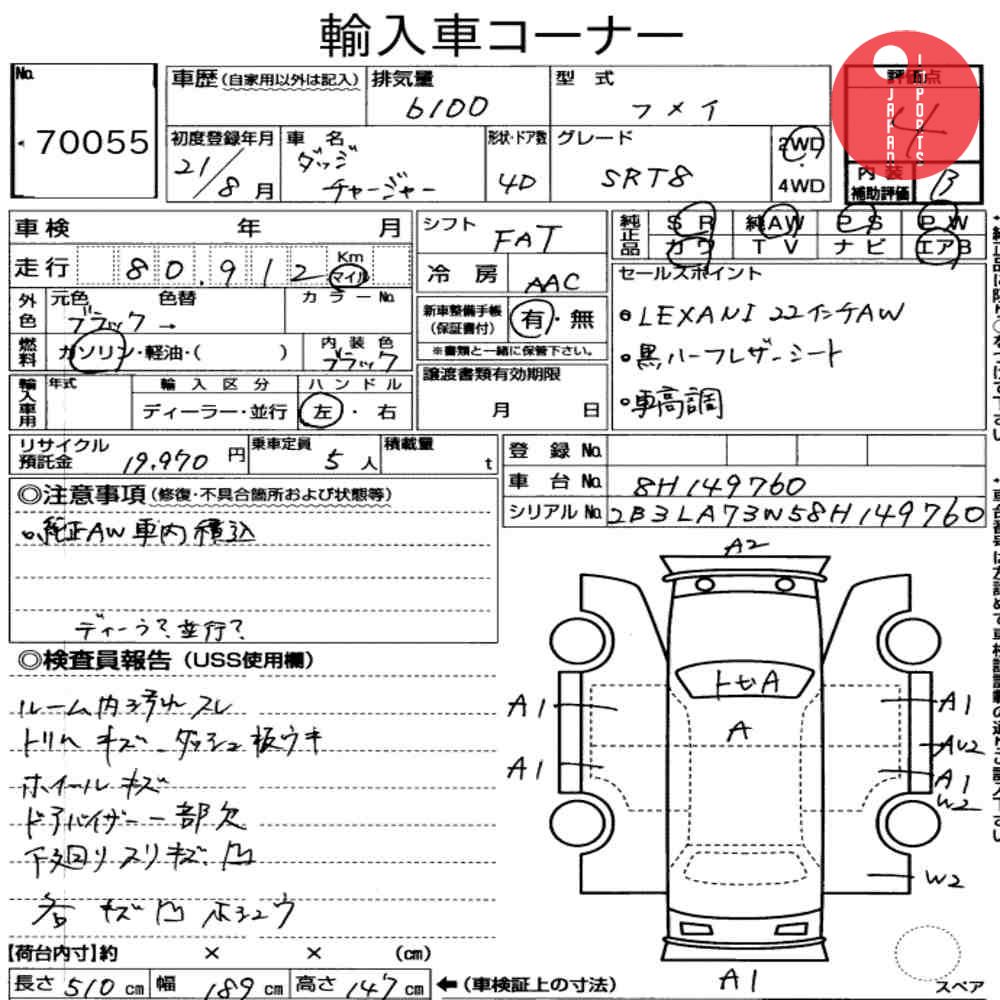 輸入車コーナー
No. 70055
車歴(自家用以外は記入) 排気量 6100 型式 フメイ
評価点 4
JAPAN IMPORTS
初度登録年月 21/8月 車名 ダッジ チャージャー 形状・ドア数 4D グレード SRT8 2WD・4WD
内装補助評価 B
車検 年 月
シフト FAT
純正品 SR 純AW PS PW カワ TV ナビ エアB
走行 80,912 Km マイル
冷房 AAC
セールスポイント
外色 元色 ブラック → 色替 カラーNo.
新車整備手帳(保証書付) 有・無
※書類と一緒に保管下さい。
・LEXANI 22インチAW
・黒ハーフレザーシート
・車高調
燃料 ガソリン・軽油・( ) 内装色 ブラック
輸入車用 年式 輸入区分 ディーラー・並行 ハンドル 左・右
譲渡書類有効期限 月 日
リサイクル預託金 19,970円 乗車定員 5人 積載量 t
登録No.
車台No. 8H149760
シリアルNo. 2B3LA73W58H149760
◎注意事項(修復・不具合箇所および状態等)
・純正AW車内積込
ディーラ?並行?
◎検査員報告(USS使用欄)
ルーム内 スレ
トリム キズ ダッシュ板ウキ
ホイールキズ
ドアバイザー一部欠
下廻りスリキズ、凹
各 キズ 凹
A2
A
A1
A1
A1
AU2
A1
W2
W2
A1
スペア
【荷台内寸】約 × × (cm)
長さ 510 cm 幅 189 cm 高さ 147 cm ←(車検証上の寸法)